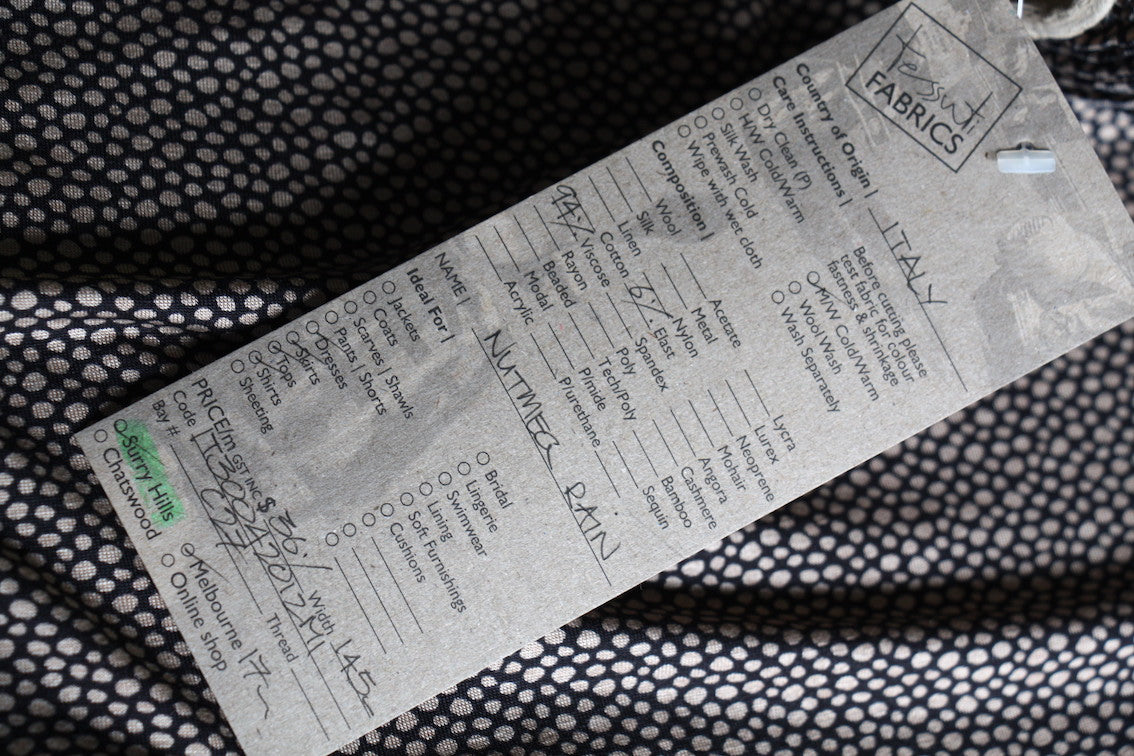 tessuti
FABRICS
Country of Origin | ITALY
Care Instructions |
Before cutting please
test fabric for colour
fastness & shrinkage
Dry Clean (P)
M/W Cold/Warm
H/W Cold/Warm
Wool Wash
Silk Wash
Wash Separately
Prewash Cold
Wipe with wet cloth
Composition |
Wool Acetate Lycra
Silk Metal Lurex
Linen Nylon Neoprene
Cotton 6% Elast Mohair
94% Viscose Spandex Angora
Rayon Poly Cashmere
Beaded Tech/Poly Bamboo
Modal P/mide Sequin
Acrylic P/urethane
NAME | NUTMEG RAIN
Ideal For |
Jackets Bridal
Coats Lingerie
Scarves | Shawls Swimwear
Pants | Shorts Lining
Dresses Soft Furnishings
Skirts Cushions
Tops
Shirts
Sheeting
PRICE/m GST INC $ 36/ Width 145
Code
Bay # Thread
Surry Hills Melbourne 17
Chatswood Online shop